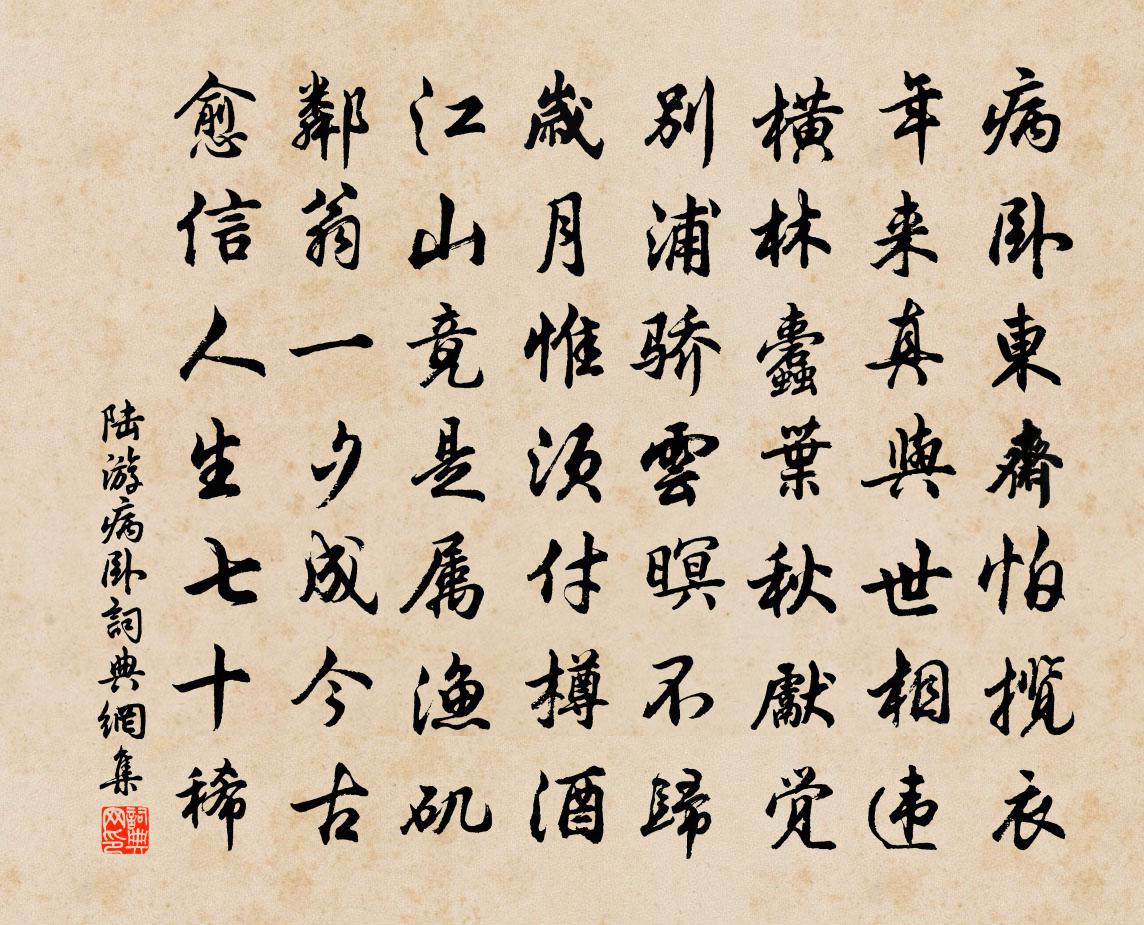 病卧東齋怕揽衣
年来真與世相违
橫林蠹葉秋獻觉
別浦骄雲暝不歸
歲月惟須付樽酒
江山竟是属漁矶
鄰翁一夕成今古
愈信人生七十稀
陆游病卧詞典網集
詞典网印